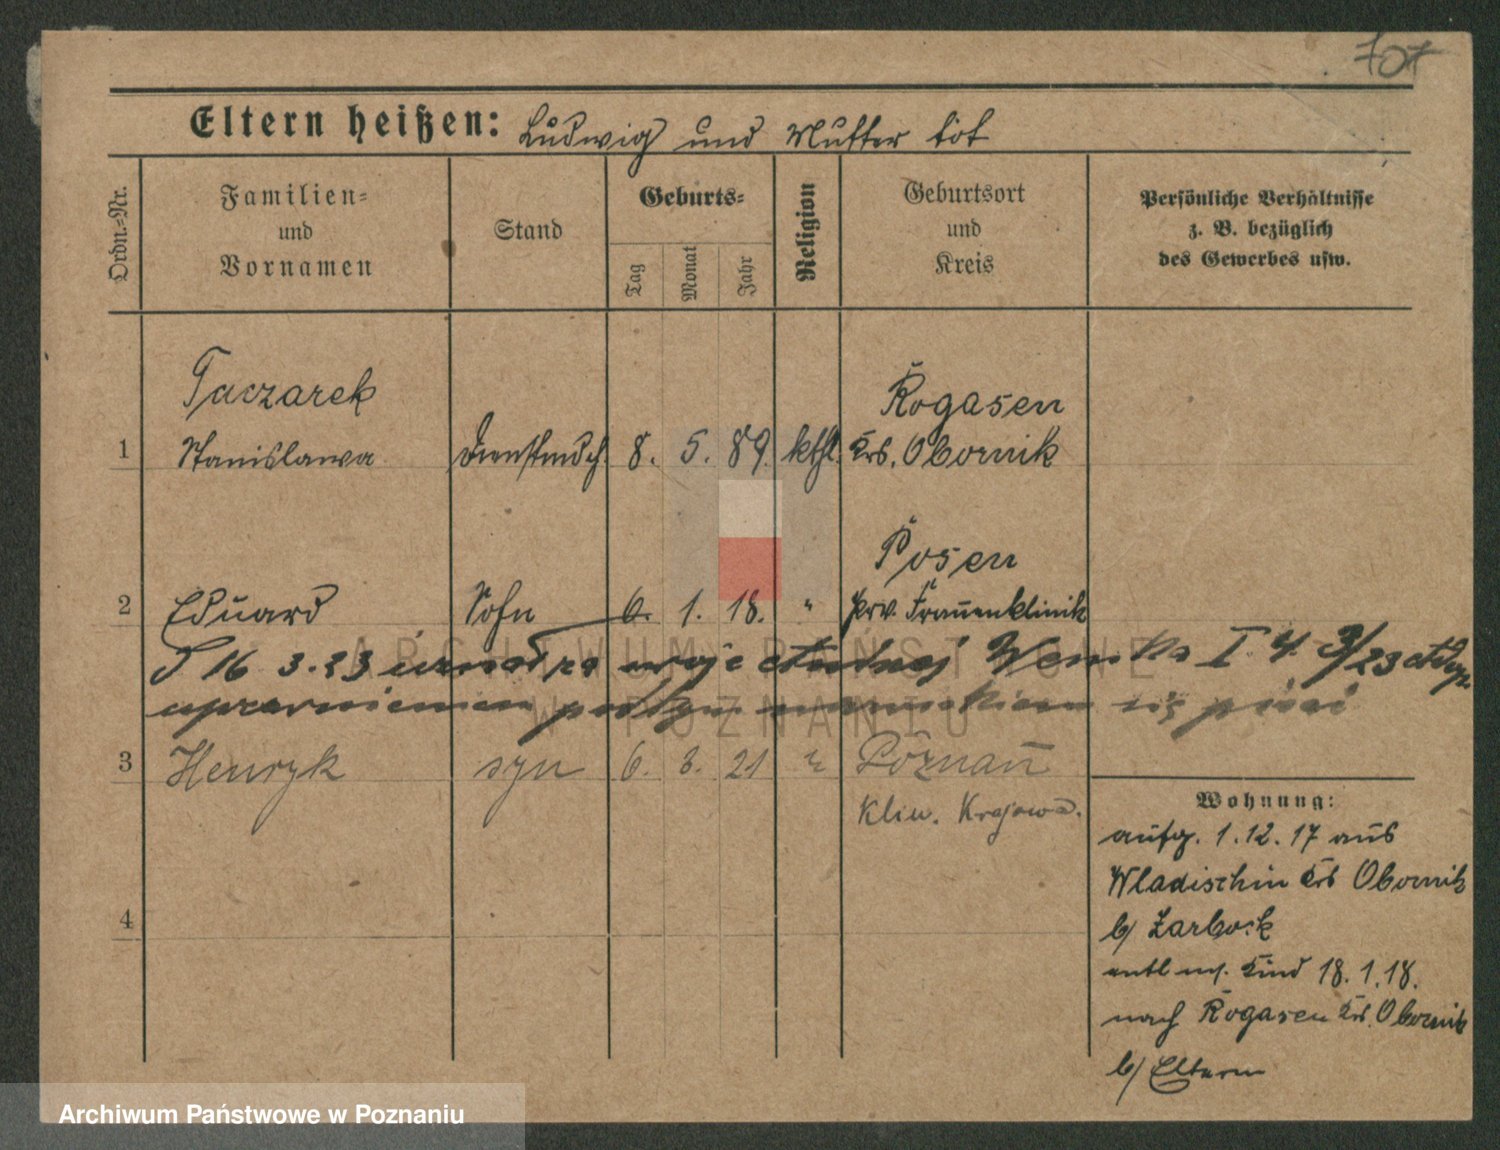 707
Eltern heißen: Ludwig und Mutter tot
Ordn.-Nr.
Familien-
und
Vornamen
Stand
Geburts-
Tag
Monat
Jahr
Religion
Geburtsort
und
Kreis
Persönliche Verhältnisse
z. B. bezüglich
des Gewerbes usw.
Taczarek
Rogasen
1 Stanislawa Dienstmdch. 8. 5. 89. kthl. Krs. Obornik
Posen
2 Eduard Sohn 6. 1. 18. " prv. Frauenklinik
16 3. 23 I 4
3 Henryk syn 6. 3. 21 " Poznań
Klin. Krajowa.
Wohnung:
aufg. 1.12.17 aus
Wladischin Krs Obornik
b/ Zarbock
entl m. Kind 18.1.18.
nach Rogasen Krs. Obornik
b/ Eltern
4
ARCHIWUM PAŃSTWOWE
W POZNANIU
Archiwum Państwowe w Poznaniu